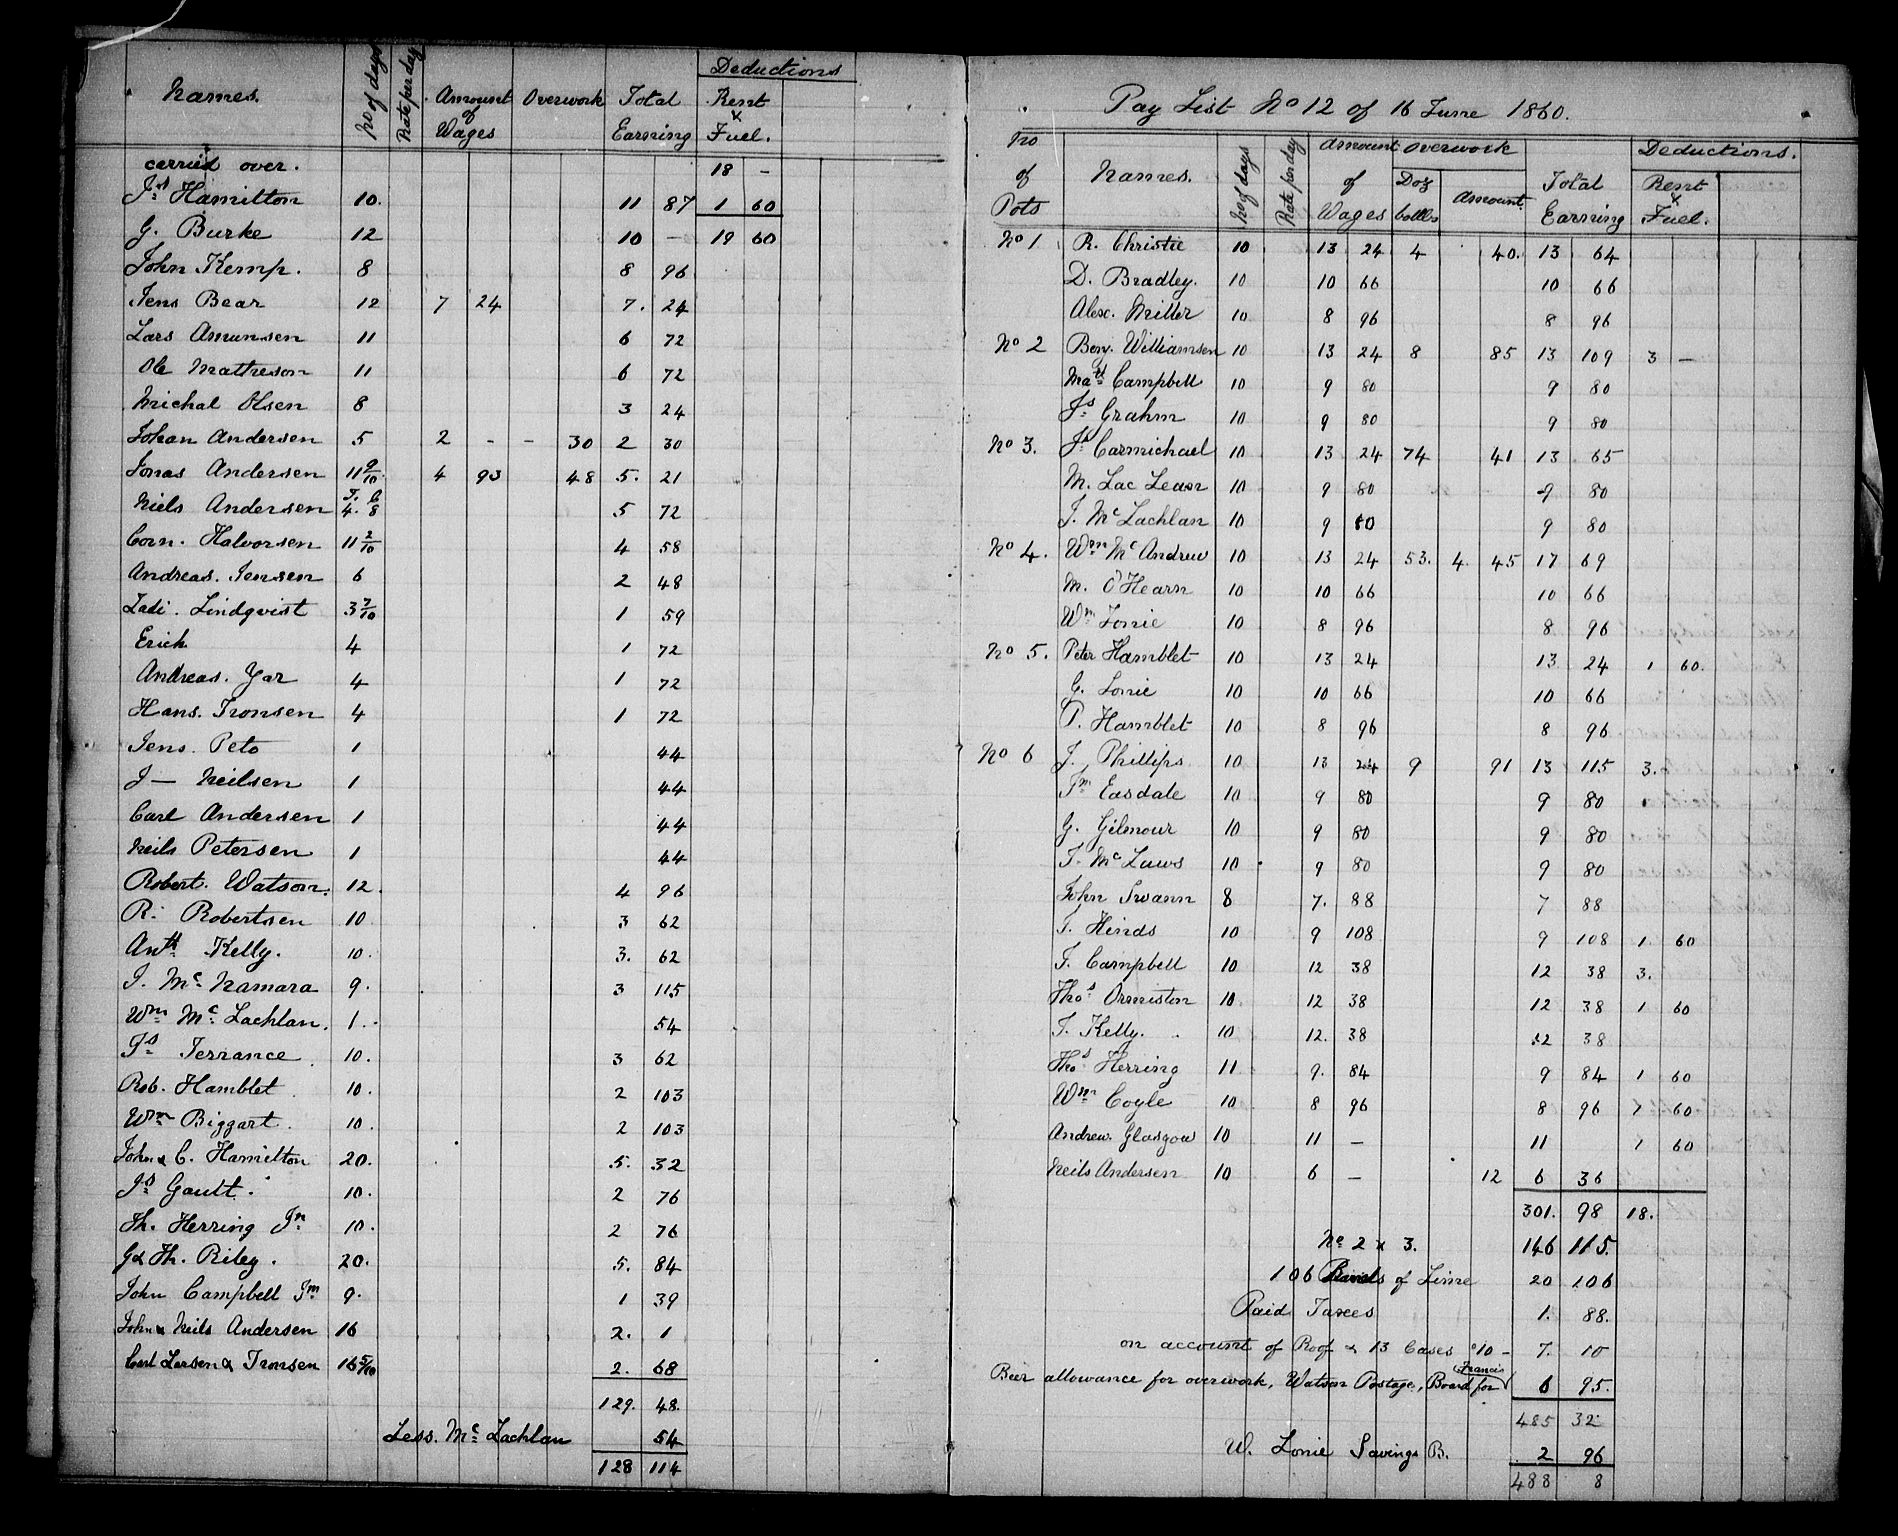 Deductions
Names. No of days Rate per day Amount of Wages Overwork Total Earning Rent & Fuel.
carried over. 18 -
Js Hamilton 10. 11 87 1 60
G. Burke 12 10 - 19 60
John Kemp. 8 8 96
Jens Bear 12 7 24 7. 24
Lars Amunsen 11 6 72
Ole Matheson 11 6 72
Michal Olsen 8 3 24
Johan Andersen 5 2 - - 30 2 30
Jonas Andersen 11 9/10. 4 93 48 5. 21
Niels Andersen 5 72
Corn. Halvorsen 11 2/10 4 58
Andreas. Jensen 6 2 48
Ladi. Lindqvist 3 7/10 1 59
Erick 4 1 72
Andreas. Yar 4 1 72
Hans. Tronsen 4 1 72
Jens. Peto 1 44
J — Neilsen 1 44
Carl Andersen 1 44
Neils Petersen 1 44
Robert. Watson. 12. 4 96
R. Robertsen 10 3 62
Anth Kelly. 10. 3. 62
J. Mc Namara 9. 3 115
Wm Mc Lachlan. 1.. 54
Js Terrance 10. 3 62
Rob. Hamblet 10. 2 103
Wm Biggart. 10. 2 103
John & C. Hamilton 20. 5. 32
Js Gault. 10. 2 76
Th. Herring Jn 10. 2 76
G & Th. Riley. 20. 5. 84
John Campbell Jn 9. 1 39
John & Neils Andersen 16 2. 1
Carl Larsen & Tronsen 16 5/10 2. 68
129. 48.
Less. Mc Lachlan 54
128 114
Pay List No 12 of 16 June 1860.
No of Pots Names. No of days Rate per day Amount of Wages Overwork Doz bottles Amount Total Earning Deductions. Rent & Fuel.
No 1 R. Christie 10 13 24 4 40. 13 64
D. Bradley. 10 10 66 10 66
Alex. Miller 10 8 96 8 96
No 2 Benj. Williamsen 10 13 24 8 85 13 109 3 —
Mad Campbell 10 9 80 9 80
Js Grahm 10 9 80 9 80
No 3. Js Carmichael 10 13 24 74 41 13 65
M. Lac Leasn 10 9 80 9 80
J. Mc Lachlan 10 9 80 9 80
No 4. Wm Mc Andrew 10 13 24 53. 4. 45 17 69
M. O'Hearn 10 10 66 10 66
Wm Lonie 10 8 96 8 96
No 5. Peter Hamblet 10 13 24 13 24 1 60.
G. Lonie 10 10 66 10 66
P. Hamblet 10 8 96 8 96
No 6 J. Phillips 10 13 24 9 91 13 115 3.
Jm Easdale 10 9 80 9 80
G. Gilmour 10 9 80 9 80
J. Mc Laws 10 9 80 9 80
John Swann 8 7. 88 7 88
J. Hinds 10 9 108 9 108 1. 60
J. Campbell 10 12 38 12 38 3.
Thos Ormiston 10 12 38 12 38 1 60
J. Kelly. 10 12. 38 12 38
Thos Herring 11 9. 84 9 84 1 60
Wm Coyle 10 8 96 8 96 1 60
Andrew. Glasgow 10 11 — 11 1 60
Neils Andersen 10 6 — 12 6 36
301. 98 18.
No 2 & 3. 146 115.
106 Barrels of Lime 20 106
Paid Taxes 1. 88.
on account of Roof & 13 Cases c10 - 7. 10
Beer allowance for overwork, Watson Postage, Board for Francis 6 95.
485 32
W. Lonie Savings B. 2 96
488 8